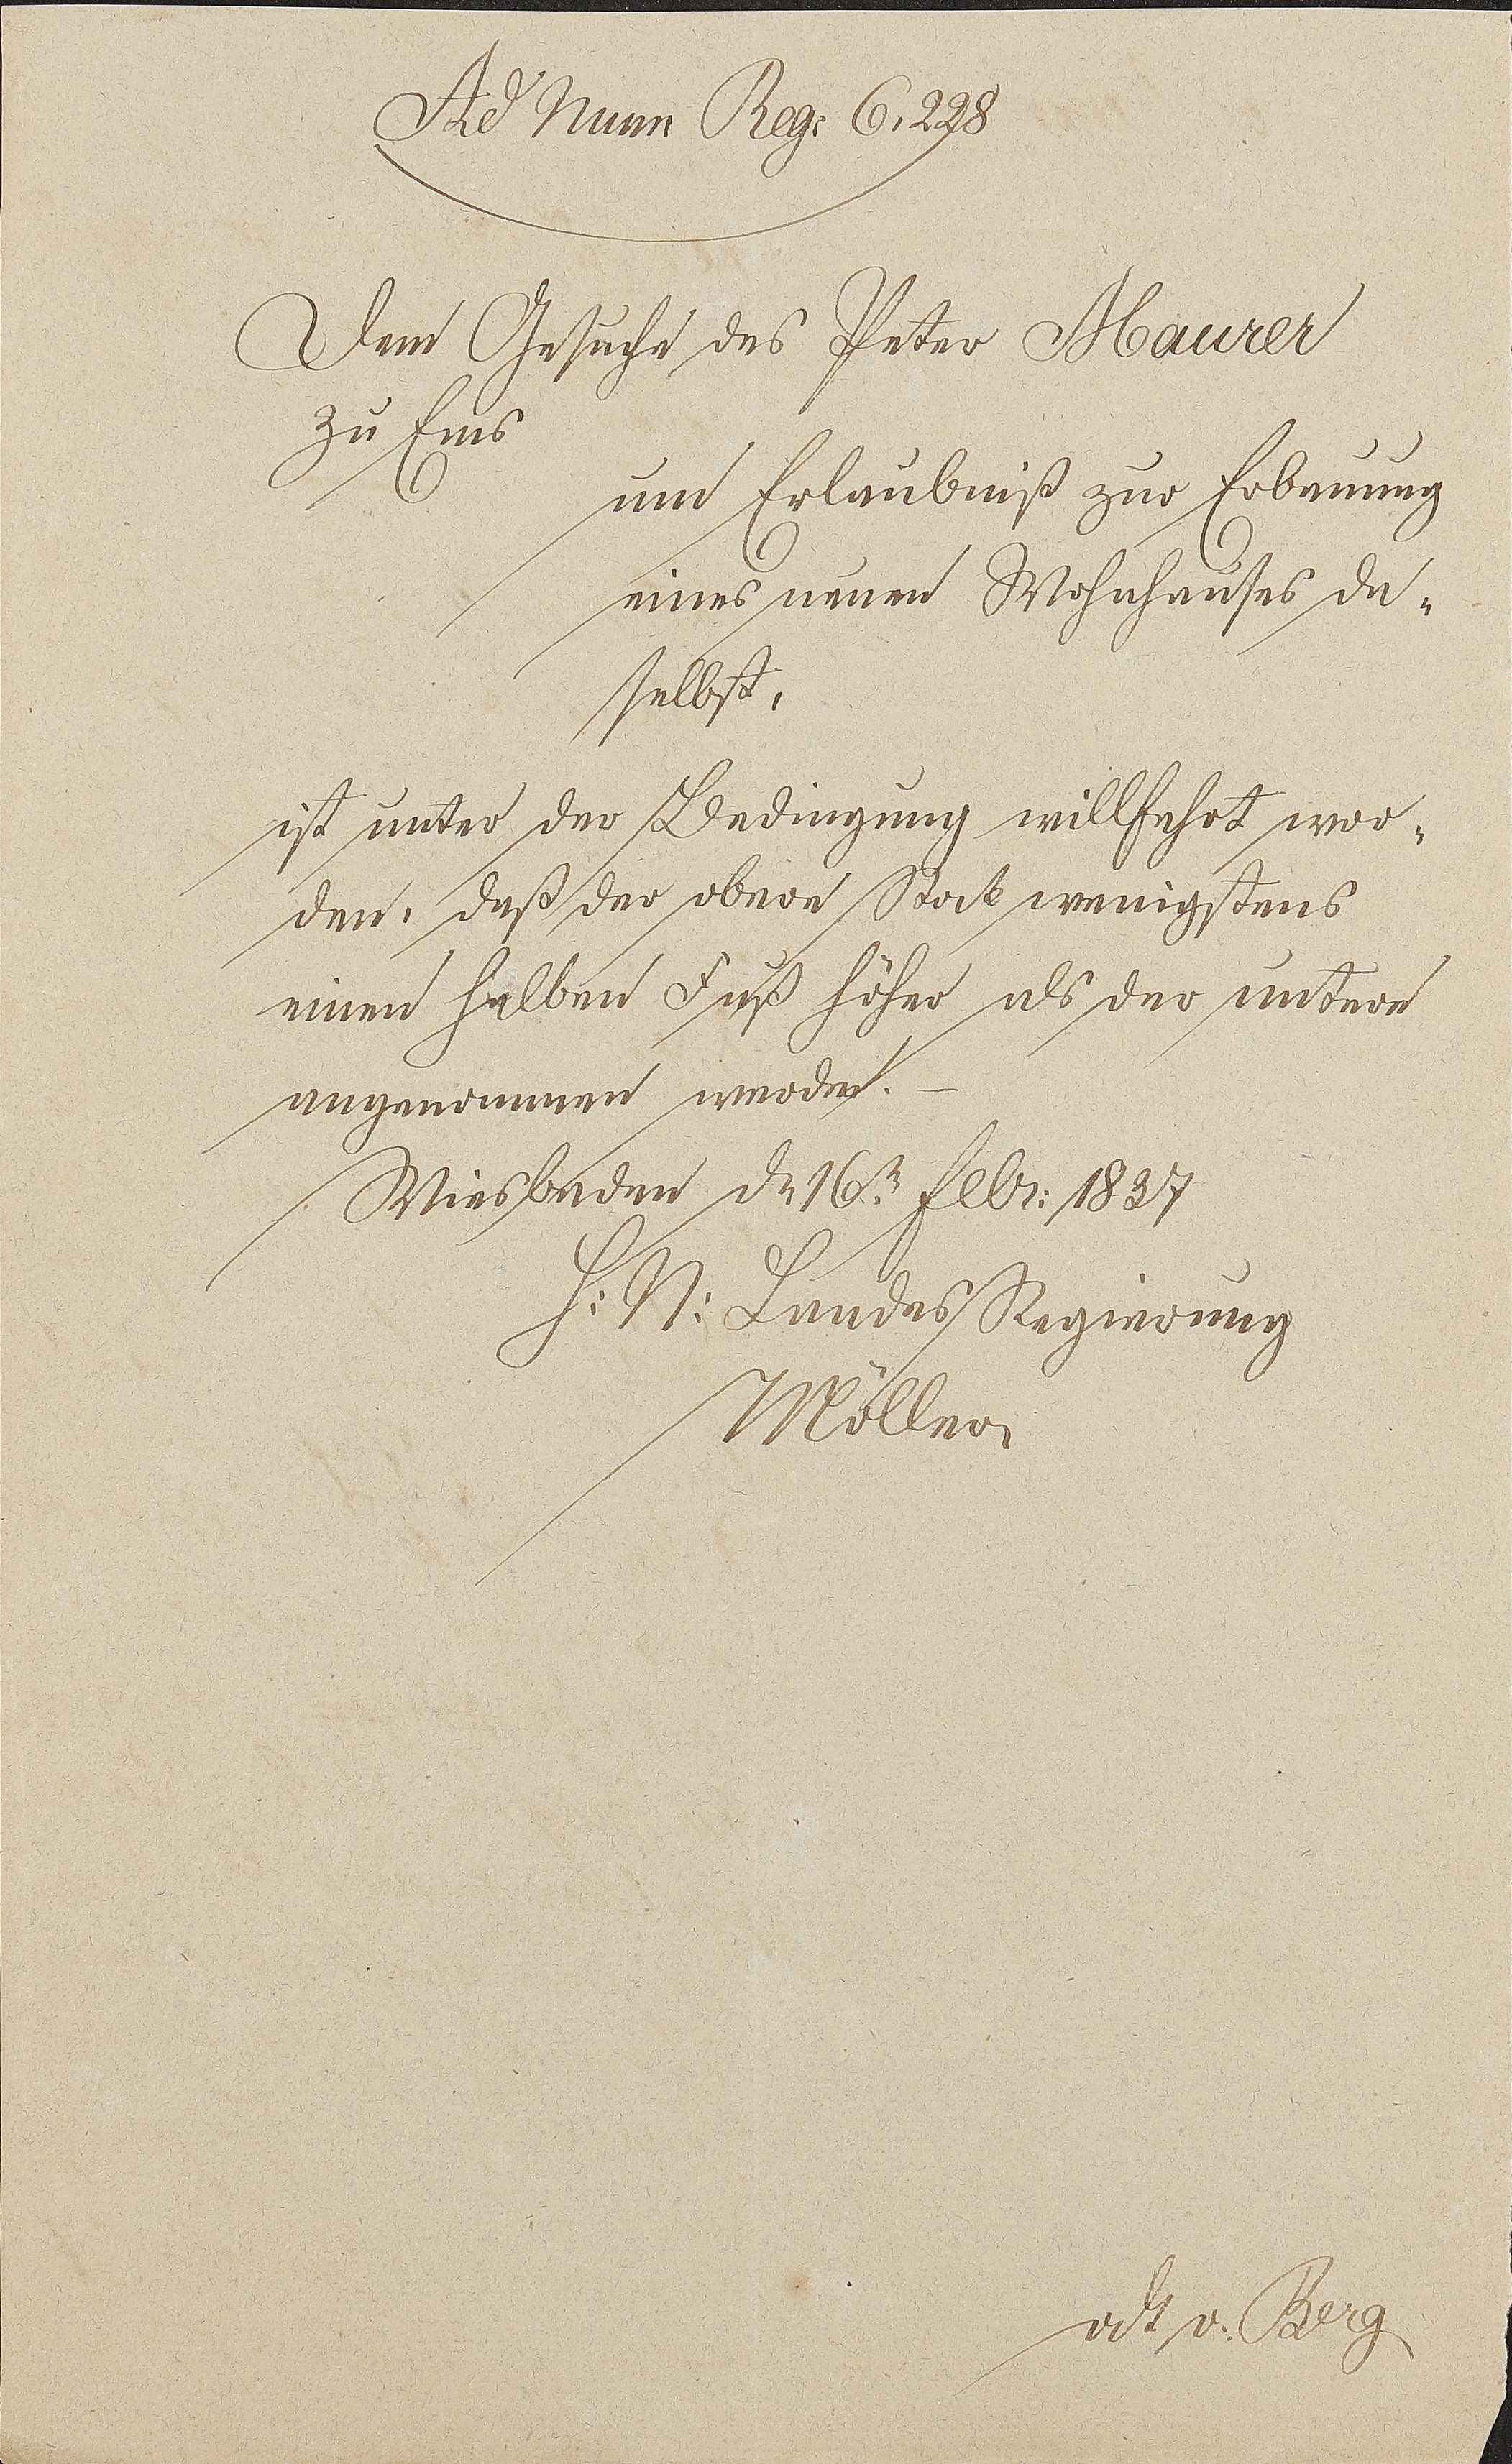 Ad Num Reg: 6,228
Dem Gesuche des Peter Maurer
zu Ems
um Erlaubniß zur Erbauung
eines neuen Wohnhauses da-
selbst,
ist unter der Bedingung willfahrt wor-
den, daß der obere Stock wenigstens
einen halben Fuß höher als der untere
angenommen werde. —
Wiesbaden d. 16n Febr: 1837
H: N: Landes Regierung
Möller
vdt v. Berg